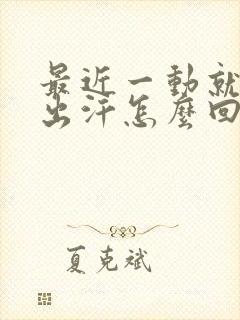 最近一動就
出汗怎麼回
夏克斌